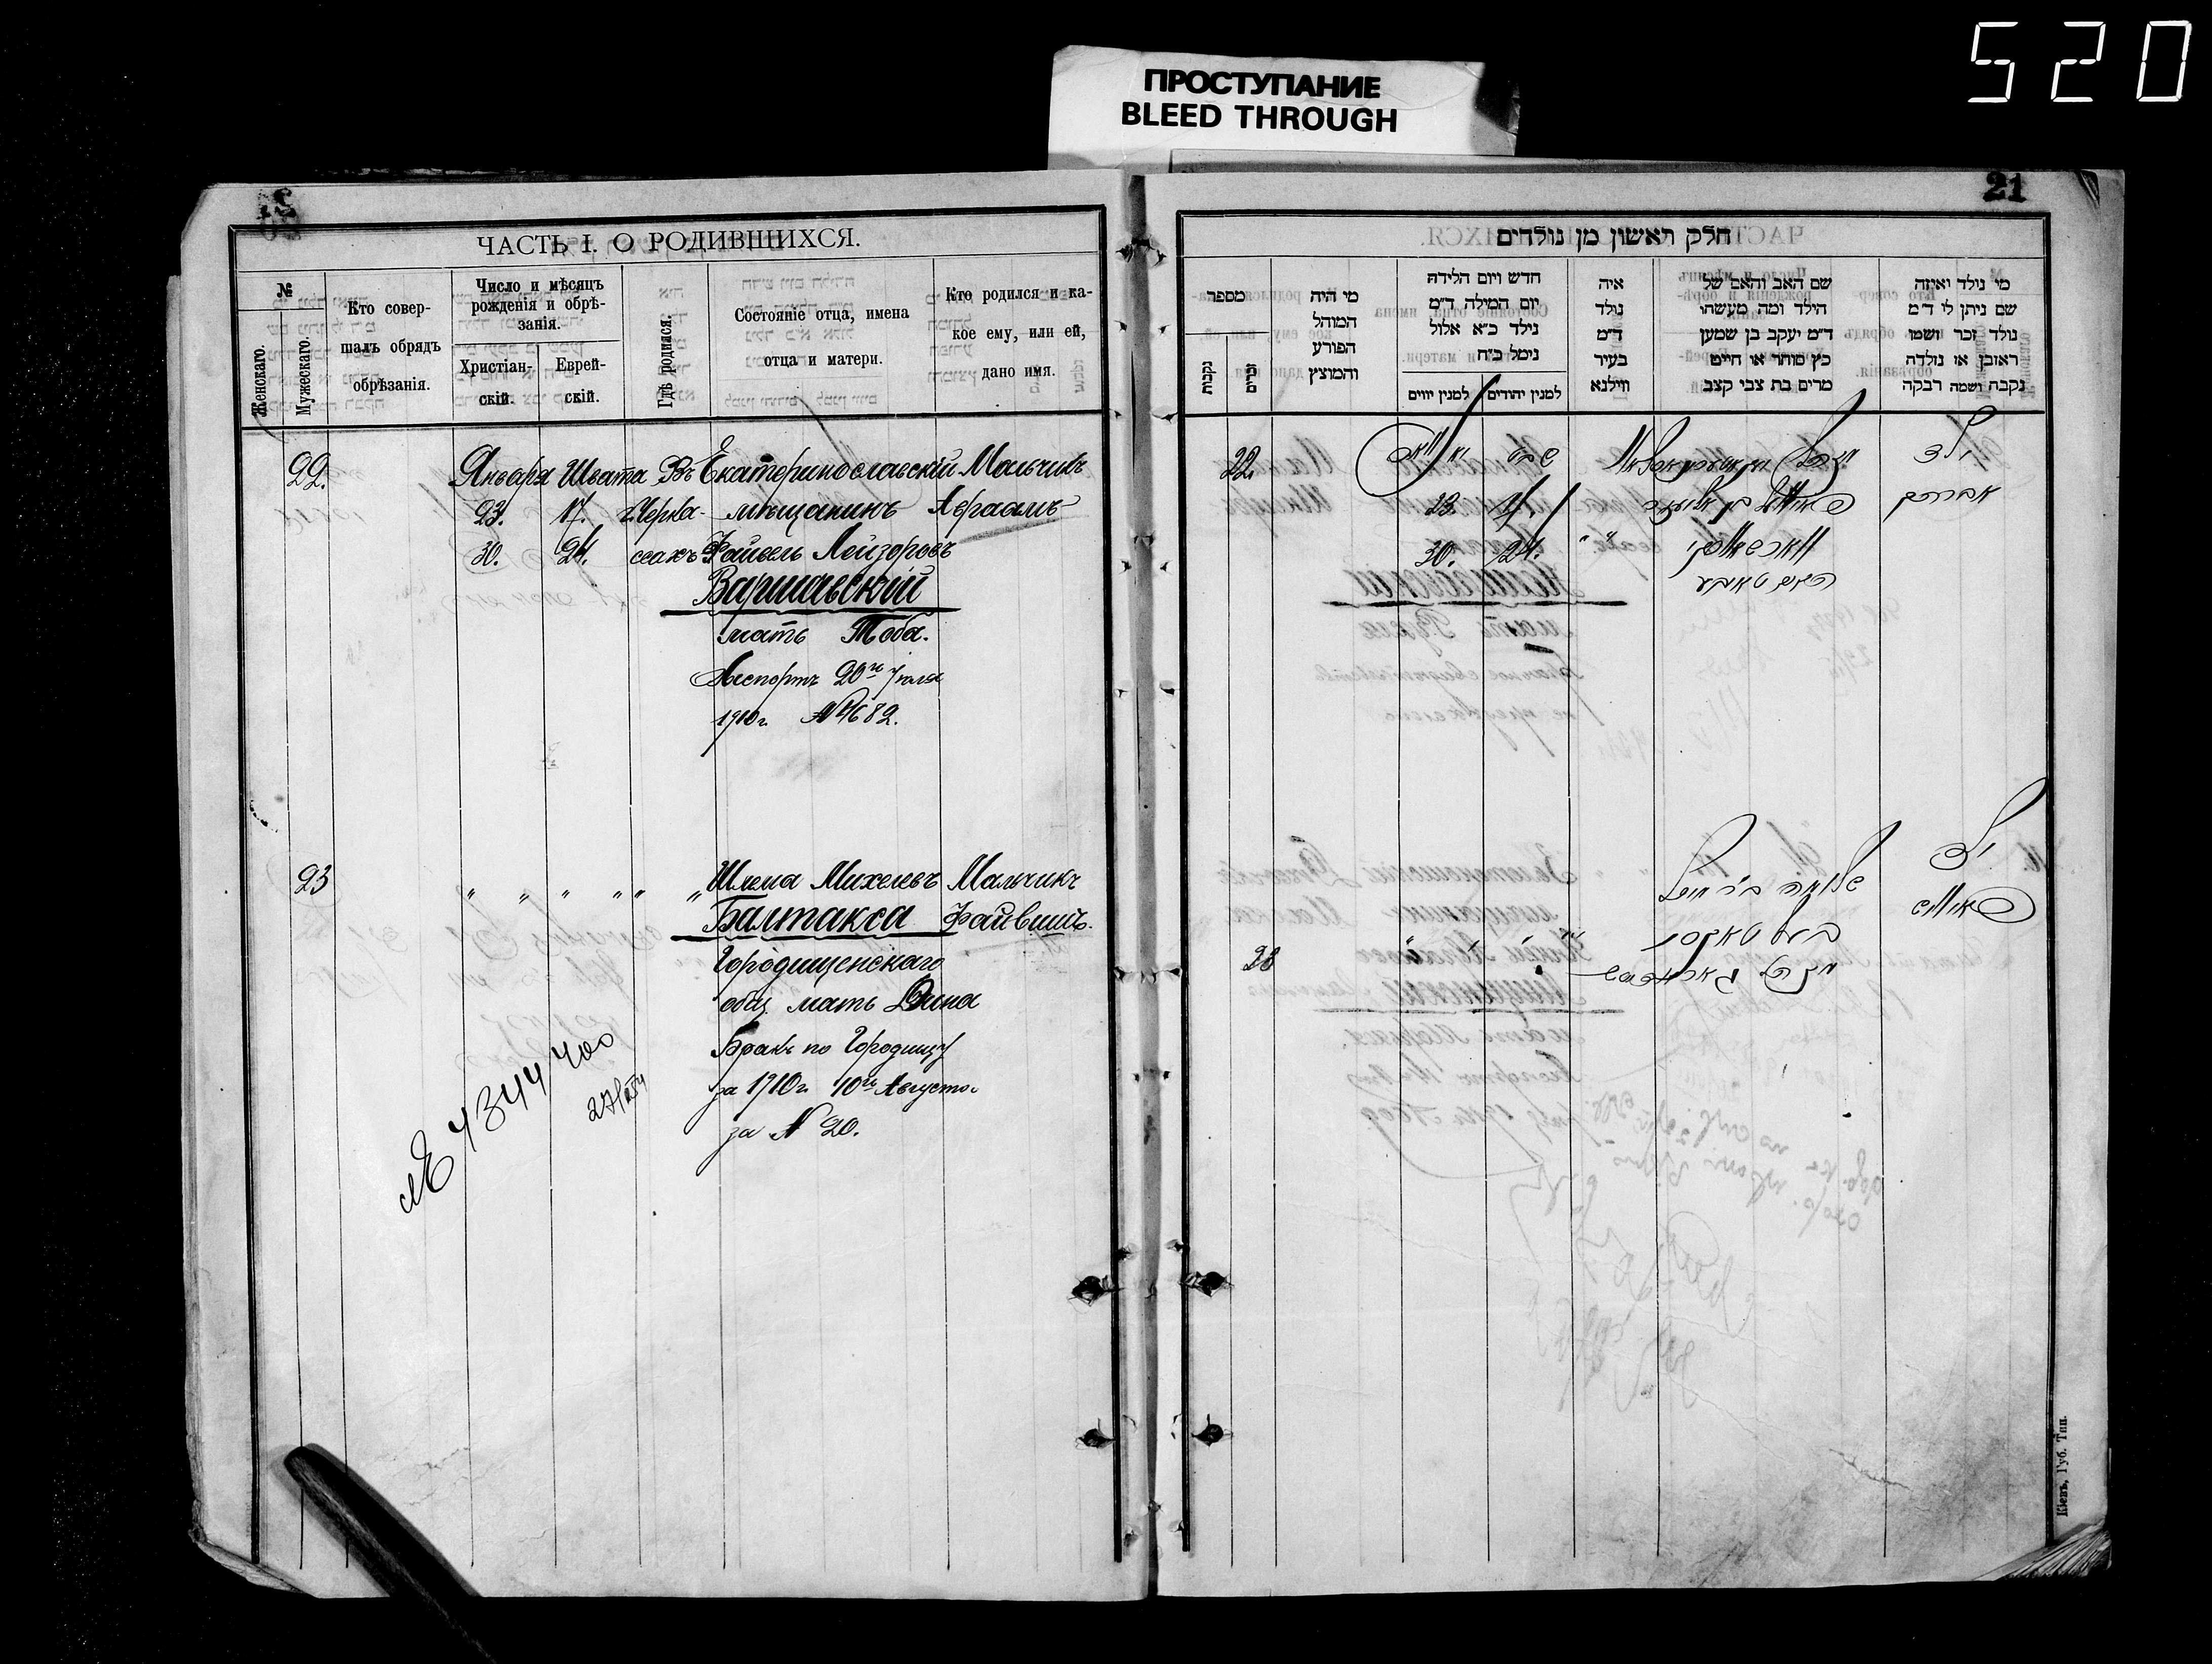 520
ПРОСТУПАНИЕ
BLEED THROUGH
ЧАСТЬ I. О РОДИВШИХСЯ.
№
Женскаго.
Мужескаго.
Кто совер-
шалъ обрядъ
обрѣзанія.
Число и мѣсяцъ
рожденія и обрѣ-
занія.
Христіан-
скій.
Еврей-
скій.
Гдѣ родился.
Состояніе отца, имена
отца и матери.
Кто родился и ка-
кое ему, или ей,
дано имя.
22. Января Швата Въ Екатеринославскій Мальчикъ
23. 17. г. Черка- мѣщанинъ Авраамъ
30. 24. сахъ Файвель Лейзоровъ
Варшавскій
мать Тоба.
Паспортъ 20го Іюля
1910г. №4682.
23 " " " " " " Шлема Михелевъ Мальчикъ
Балтакса Файвишъ.
Городищенскаго
общ. мать Дина
Бракъ по Городищу
за 1910г. 10го Августа
за № 20.
№ 4344400
21
חלק ראשון מן נולדים
מי נולד ואיזה
שם ניתן לי ד״מ
נולד זכר ושמו
ראובן או נולדה
נקבה ושמה רבקה
שם האב והאם של
הילד ומה מעשהו
ד״מ יעקב בן שמעון
כץ סוחר או חייט
מרים בת צבי קצב
איה
נולד
ד״מ
בעיר
ווילנא
חדש ויום הלידה
יום המילה ד״מ
נילד כ״א אלול
נימל כ״ח
למנין יהודים
למנין יוונים
מי היה
המוהל
הפורע
והמוצץ
מספר
זכרים
נקבות
ילד
אברהם
שבט
22.
23. 17.
30. 24.
ווארשאווסקי
ילד
פאוויש
שלמה
בעל טאקסא
23
Кіевъ, Губ. Тип.